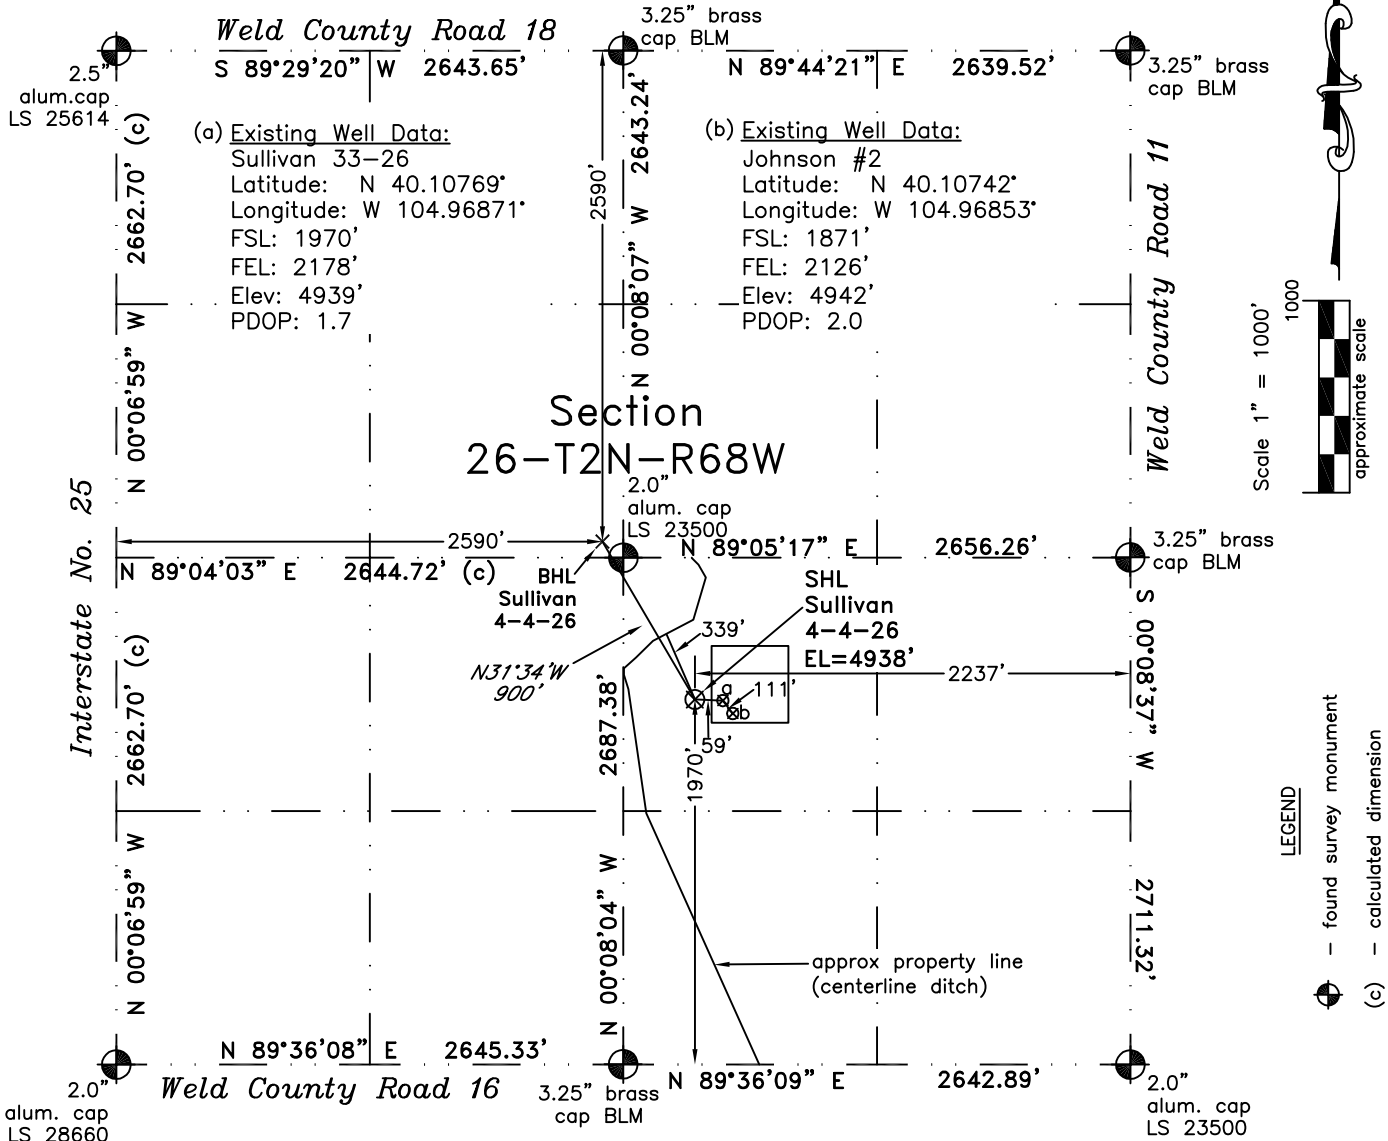 Weld County Road 18
3.25" brass
cap BLM
2.5"
alum.cap
LS 25614
S 89°29'20" W 2643.65'
N 89°44'21" E 2639.52'
3.25" brass
cap BLM
(a) Existing Well Data:
Sullivan 33-26
Latitude: N 40.10769°
Longitude: W 104.96871°
FSL: 1970'
FEL: 2178'
Elev: 4939'
PDOP: 1.7
(b) Existing Well Data:
Johnson #2
Latitude: N 40.10742°
Longitude: W 104.96853°
FSL: 1871'
FEL: 2126'
Elev: 4942'
PDOP: 2.0
N 00°06'59" W 2662.70' (c)
2590'
N 00°08'07" W 2643.24'
Weld County Road 11
Scale 1" = 1000'
1000
approximate scale
Section
26-T2N-R68W
2.0"
alum. cap
LS 23500
2590'
N 89°05'17" E 2656.26'
3.25" brass
cap BLM
N 89°04'03" E 2644.72' (c)
Interstate No. 25
BHL
Sullivan
4-4-26
SHL
Sullivan
4-4-26
EL=4938'
339'
N31°34'W
900'
2237'
a
111'
b
59'
1970'
N 00°06'59" W 2662.70' (c)
N 00°08'04" W 2687.38'
S 00°08'37" W 2711.32'
approx property line
(centerline ditch)
LEGEND
- found survey monument
(c) - calculated dimension
N 89°36'08" E 2645.33'
Weld County Road 16
N 89°36'09" E 2642.89'
2.0"
alum. cap
LS 28660
3.25" brass
cap BLM
2.0"
alum. cap
LS 23500